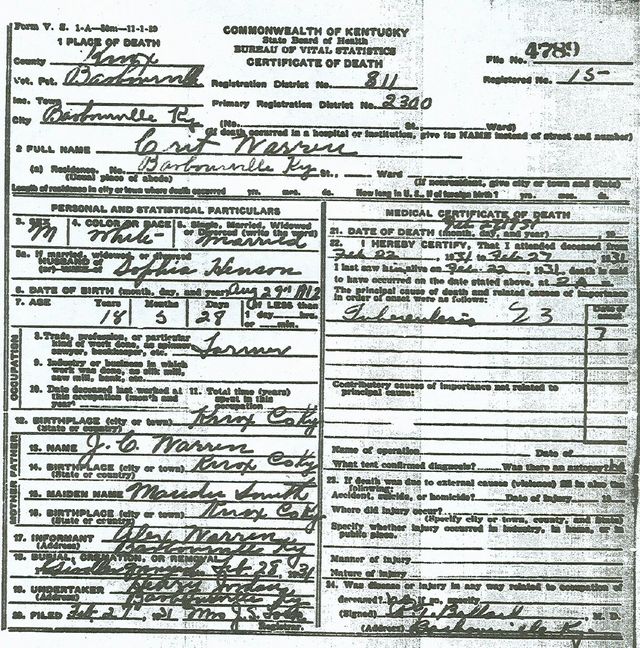 Form V. S. 1-A—50m—11-1-29
COMMONWEALTH OF KENTUCKY
State Board of Health
BUREAU OF VITAL STATISTICS
CERTIFICATE OF DEATH
File No. 4789
Registered No. 15
1 PLACE OF DEATH
County Knox
Vot. Pct. Barbourville
Registration District No. 811
Inc. Town
Primary Registration District No. 2300
City Barbourville Ky
(No. St. Ward)
(If death occurred in a hospital or institution, give its NAME instead of street and number)
2 FULL NAME Crit Warren
(a) Residence. No. Barbourville Ky St., Ward
(Usual place of abode) (If nonresident, give city or town and State)
Length of residence in city or town where death occurred yrs. mos. ds. How long in U. S., if of foreign birth? yrs. mos. ds.
PERSONAL AND STATISTICAL PARTICULARS
3. SEX M
4. COLOR OR RACE White
5. Single, Married, Widowed or Divorced (write the word) Married
5a. If married, widowed, or divorced
HUSBAND of
(or) WIFE of Sophia Henson
6. DATE OF BIRTH (month, day, and year) Aug 29th 1912
7. AGE Years Months Days If LESS than
18 5 28 1 day, hrs.
or min.
OCCUPATION
8. Trade, profession, or particular
kind of work done, as spinner,
sawyer, bookkeeper, etc. Farmer
9. Industry or business in which
work was done, as silk mill,
saw mill, bank, etc.
10. Date deceased last worked at
this occupation (month and
year)
11. Total time (years)
spent in this
occupation
12. BIRTHPLACE (city or town) Knox Co Ky
(State or country)
FATHER
13. NAME J. C. Warren
14. BIRTHPLACE (city or town) Knox Co Ky
(State or country)
MOTHER
15. MAIDEN NAME Smith
16. BIRTHPLACE (city or town) Knox Co Ky
(State or country)
17. INFORMANT Alex Warren
(Address) Barbourville Ky
18. BURIAL, CREMATION, OR REMOVAL
Feb. 28 1931
19. UNDERTAKER
(Address) Barbourville Ky
20. FILED Feb. 27, 31 Mrs J. S.
Registrar.
MEDICAL CERTIFICATE OF DEATH
21. DATE OF DEATH (month, day and year)
22. I HEREBY CERTIFY, That I attended deceased from
Feb 22, 1931 to Feb 27, 1931
I last saw him alive on Feb. 22, 1931, death is said
to have occurred on the date stated above, at 2 m.
The principal cause of death and related causes of importance
in order of onset were as follows:
Date of
Tuberculosis 23
7
Contributory causes of importance not related to
principal cause:
Name of operation Date of
What test confirmed diagnosis? Was there an autopsy?
23. If death was due to external causes (violence) fill in also the
following:
Accident, suicide, or homicide? Date of injury 19
Where did injury occur?
(Specify city or town, county, and State)
Specify whether injury occurred in industry, in home, or in
public place.
Manner of injury
Nature of injury
24. Was disease or injury in any way related to occupation of
deceased? If so, specify
(Signed) M. D.
(Address) Barbourville Ky